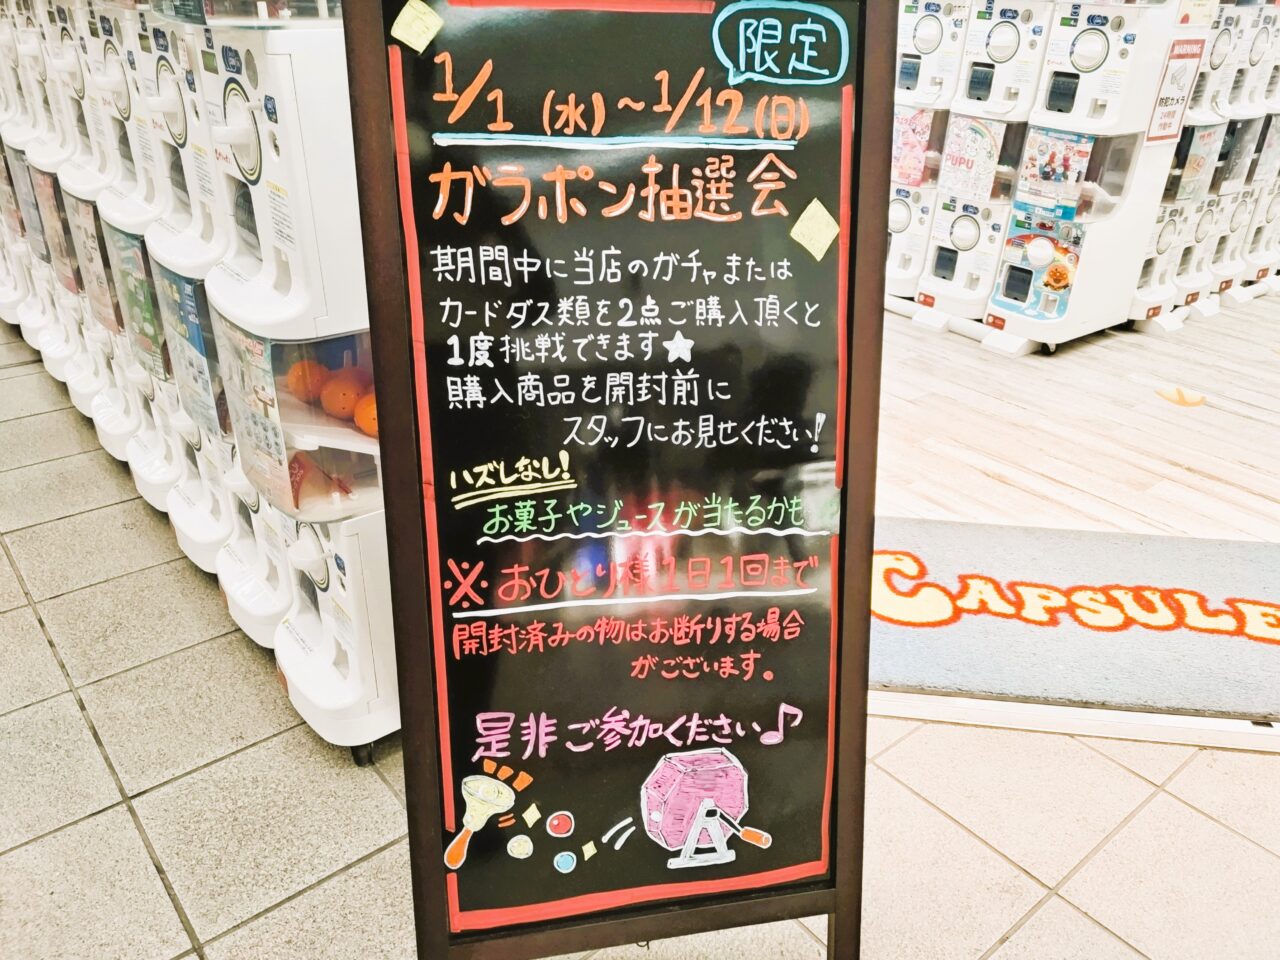 限定
1/1(水)～1/12(日)
ガラポン抽選会
期間中に当店のガチャまたは
カードダス類を2点ご購入頂くと
1度挑戦できます★
購入商品を開封前に
スタッフにお見せください!
ハズレなし!
お菓子やジュースが当たるかも
※おひとり様1日1回まで
開封済みの物はお断りする場合
がございます。
是非ご参加ください♪
WARNING
防犯カメラ
24時間
作動中
PUPU
CAPSULE